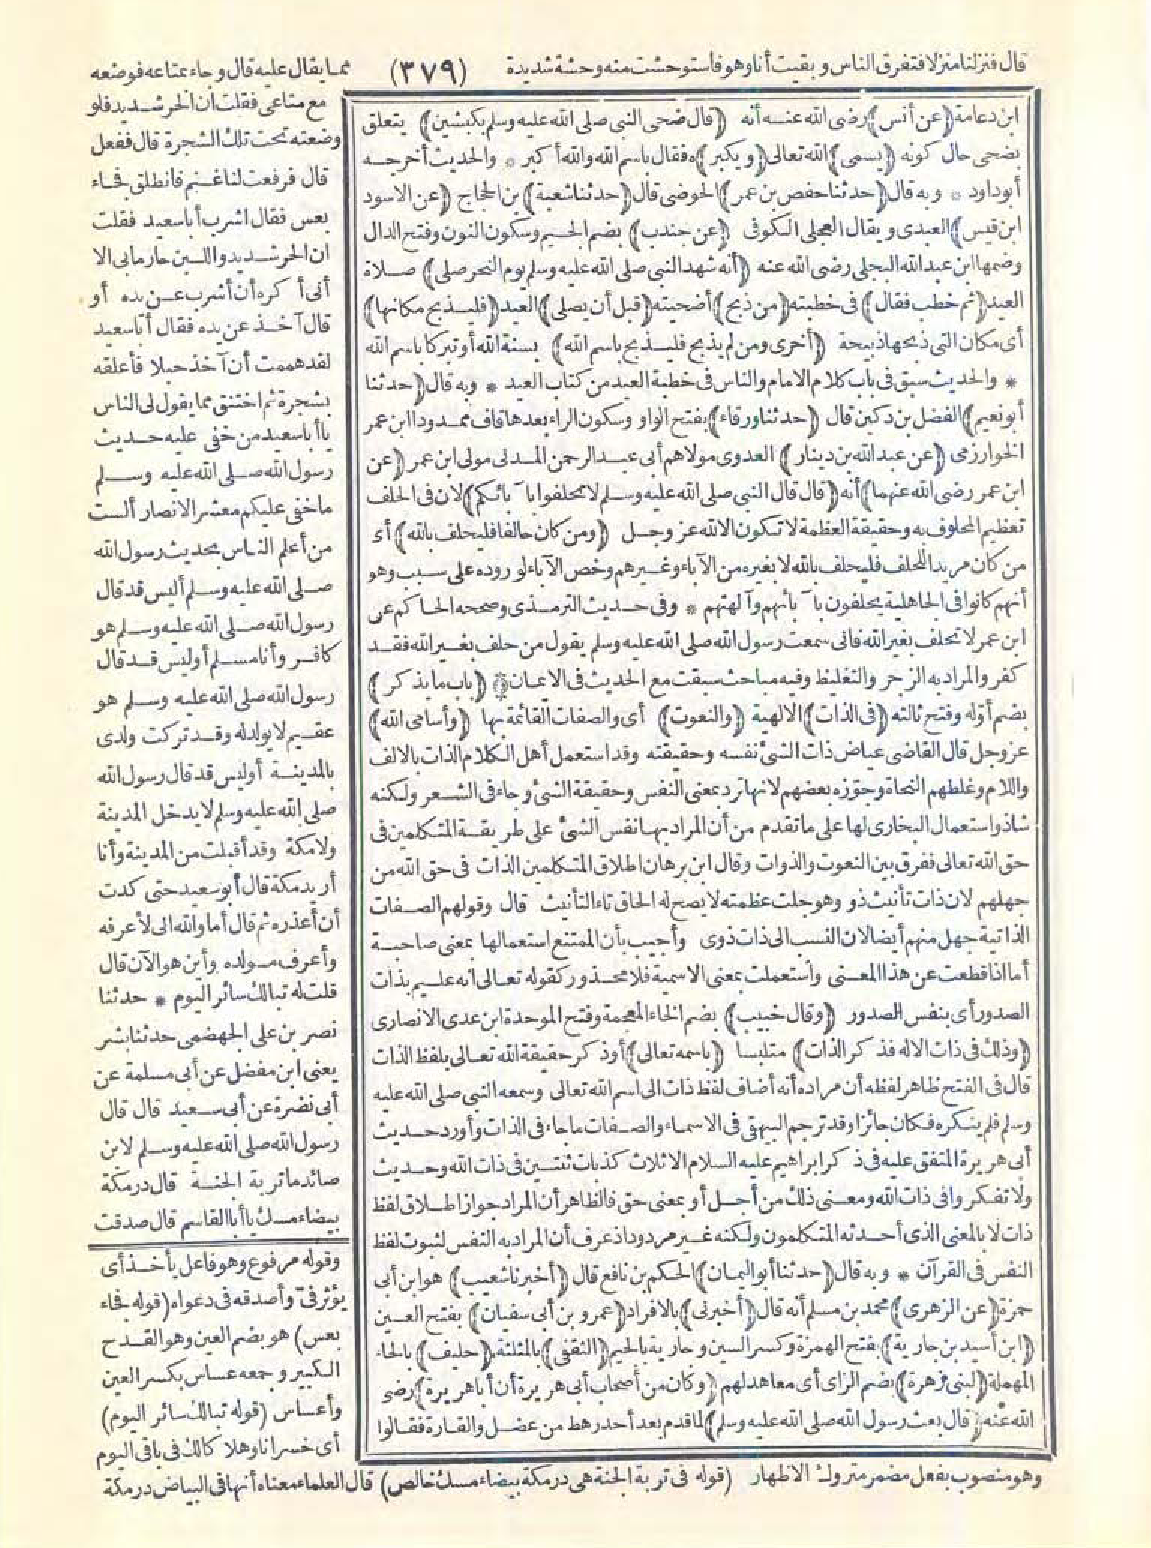 قال فنزلنا منزلا فتفرق الناس وبقيت أنا وهو فاستوحشت منه وحشة شديدة
(٣٧٩)
مما يقال عليه قال وجاء بمتاعه فوضعه
مع متاعي فقلت ان الحر شديد فلو
وضعته تحت تلك الشجرة قال ففعل
قال فرفعت لنا غنم فانطلق فجاء
بعس فقال اشرب أبا سعيد فقلت
ان الحر شديد واللبن حار ما بي الا
أني أكره أن أشرب عن يده أو
قال آخذ عن يده فقال أبا سعيد
لقد هممت أن آخذ حبلا فأعلقه
بشجرة ثم اختنق مما يقول لي الناس
يا أبا سعيد من خفي عليه حديث
رسول الله صلى الله عليه وسلم
ما خفي عليكم معشر الانصار ألست
من أعلم الناس بحديث رسول الله
صلى الله عليه وسلم أليس قد قال
رسول الله صلى الله عليه وسلم هو
كافر وأنا مسلم أوليس قد قال
رسول الله صلى الله عليه وسلم هو
عقيم لا يولد له وقد تركت ولدي
بالمدينة أوليس قد قال رسول الله
صلى الله عليه وسلم لا يدخل المدينة
ولا مكة وقد أقبلت من المدينة وأنا
أريد مكة قال أبو سعيد حتى كدت
أن أعذره ثم قال أما والله اني لأعرفه
وأعرف مولده وأين هو الآن قال
قلت له تبا لك سائر اليوم * حدثنا
نصر بن علي الجهضمي حدثنا بشر
يعني ابن مفضل عن أبي مسلمة عن
أبي نضرة عن أبي سعيد قال قال
رسول الله صلى الله عليه وسلم لابن
صائد ما تربة الجنة قال درمكة
بيضاء مسك يا أبا القاسم قال صدقت
ابن دعامة (عن أنس) رضى الله عنه أنه (قال ضحى النبي صلى الله عليه وسلم بكبشين) يتعلق
بضحى حال كونه (يسمى) الله تعالى (ويكبر) ه فقال باسم الله والله أكبر * والحديث أخرجه
أبو داود * وبه قال (حدثنا حفص بن عمر) الحوضى قال (حدثنا شعبة) بن الحجاج (عن الاسود
ابن قيس) العبدى ويقال العجلى الكوفى (عن جندب) بضم الجيم وسكون النون وفتح الدال
وضمها ابن عبد الله البجلى رضى الله عنه (أنه شهد النبي صلى الله عليه وسلم يوم النحر صلى) صلاة
العيد (ثم خطب فقال) فى خطبته (من ذبح) أضحيته (قبل أن يصلى) العيد (فليذبح مكانها)
أى مكان التى ذبحها ذبيحة (أخرى ومن لم يذبح فليذبح باسم الله) بسنة الله أو تبركا باسم الله
* والحديث سبق فى باب كلام الامام والناس فى خطبة العيد من كتاب العيد * وبه قال (حدثنا
أبو نعيم) الفضل بن دكين قال (حدثنا ورقاء) بفتح الواو وسكون الراء بعدها قاف ممدودا ابن عمر
الخوارزمى (عن عبد الله بن دينار) العدوى مولاهم أبى عبد الرحمن المدنى مولى ابن عمر (عن
ابن عمر رضى الله عنهما) أنه (قال قال النبي صلى الله عليه وسلم لا تحلفوا با بائكم) لان فى الحلف
تعظيم المحلوف به وحقيقة العظمة لا تكون الا لله عز وجل (ومن كان حالفا فليحلف بالله) أى
من كان مريدا للحلف فليحلف بالله لا بغيره من الآباء وغيرهم وخص الآباء لوروده على سبب وهو
أنهم كانوا فى الجاهلية يحلفون با بائهم وآلهتهم * وفى حديث الترمذى وصححه الحاكم عن
ابن عمر لا تحلف بغير الله فانى سمعت رسول الله صلى الله عليه وسلم يقول من حلف بغير الله فقد
كفر والمراد به الزجر والتغليظ وفيه مباحث سبقت مع الحديث فى الايمان * (باب ما يذكر)
بضم أوله وفتح ثالثه (فى الذات) الالهية (والنعوت) أى والصفات القائمة بها (وأسامى الله)
عز وجل قال القاضى عياض ذات الشئ نفسه وحقيقته وقد استعمل أهل الكلام الذات بالالف
واللام وغلطهم النحاة وجوزه بعضهم لانها ترد بمعنى النفس وحقيقة الشئ وجاء فى الشعر ولكنه
شاذ واستعمال البخارى لها على ما تقدم من أن المراد بها نفس الشئ على طريقة المتكلمين فى
حق الله تعالى ففرق بين النعوت والذوات وقال ابن برهان اطلاق المتكلمين الذات فى حق الله من
جهلهم لان ذات تأنيث ذو وهو جلت عظمته لا يصح له الحاق تاء التأنيث قال وقولهم الصفات
الذاتية جهل منهم أيضا لان النسب الى ذات ذوى وأجيب بأن الممتنع استعمالها بمعنى صاحبة
أما اذا قطعت عن هذا المعنى واستعملت بمعنى الاسمية فلا محذور كقوله تعالى انه عليم بذات
الصدور أى بنفس الصدور (وقال خبيب) بضم الخاء المعجمة وفتح الموحدة ابن عدى الانصارى
(وذلك فى ذات الاله فذكر الذات) متلبسا (باسمه تعالى) أو ذكر حقيقة الله تعالى بلفظ الذات
قال فى الفتح ظاهر لفظه أن مراده أنه أضاف لفظ ذات الى اسم الله تعالى وسمعه النبي صلى الله عليه
وسلم فلم ينكره فكان جائزا وقد ترجم البيهقى فى الاسماء والصفات ما جاء فى الذات وأورد حديث
أبى هريرة المتفق عليه فى ذكر ابراهيم عليه السلام الا ثلاث كذبات ثنتين فى ذات الله وحديث
ولا تفكروا فى ذات الله ومعنى ذلك من أجل أو بمعنى حق فالظاهر أن المراد جواز اطلاق لفظ
ذات لا بالمعنى الذى أحدثه المتكلمون ولكنه غير مردود اذ عرف أن المراد به النفس لثبوت لفظ
النفس فى القرآن * وبه قال (حدثنا أبو اليمان) الحكم بن نافع قال (أخبرنا شعيب) هو ابن أبى
حمزة (عن الزهرى) محمد بن مسلم أنه قال (أخبرنى) بالافراد (عمرو بن أبى سفيان) بفتح العين
(ابن أسيد بن جارية) بفتح الهمزة وكسر السين وجارية بالجيم (الثقفى) بالمثلثة (حليف) بالحاء
المهملة (لبنى زهرة) بضم الزاى أى معاهد لهم (وكان من أصحاب أبى هريرة أن أبا هريرة) رضى
الله عنه (قال بعث رسول الله صلى الله عليه وسلم) لما قدم بعد أحد رهط من عضل والقارة فقالوا
وقوله مرفوع وهو فاعل يأخذ أى
يؤثر فىّ وأصدقه فى دعواه (قوله فجاء
بعس) هو بضم العين وهو القدح
الكبير وجمعه عساس بكسر العين
وأعساس (قوله تبا لك سائر اليوم)
أى خسرانا وهلاكا لك فى باقى اليوم
وهو منصوب بفعل مضمر متروك الاظهار (قوله فى تربة الجنة هى درمكة بيضاء مسك خالص) قال العلماء معناه أنها فى البياض درمكة